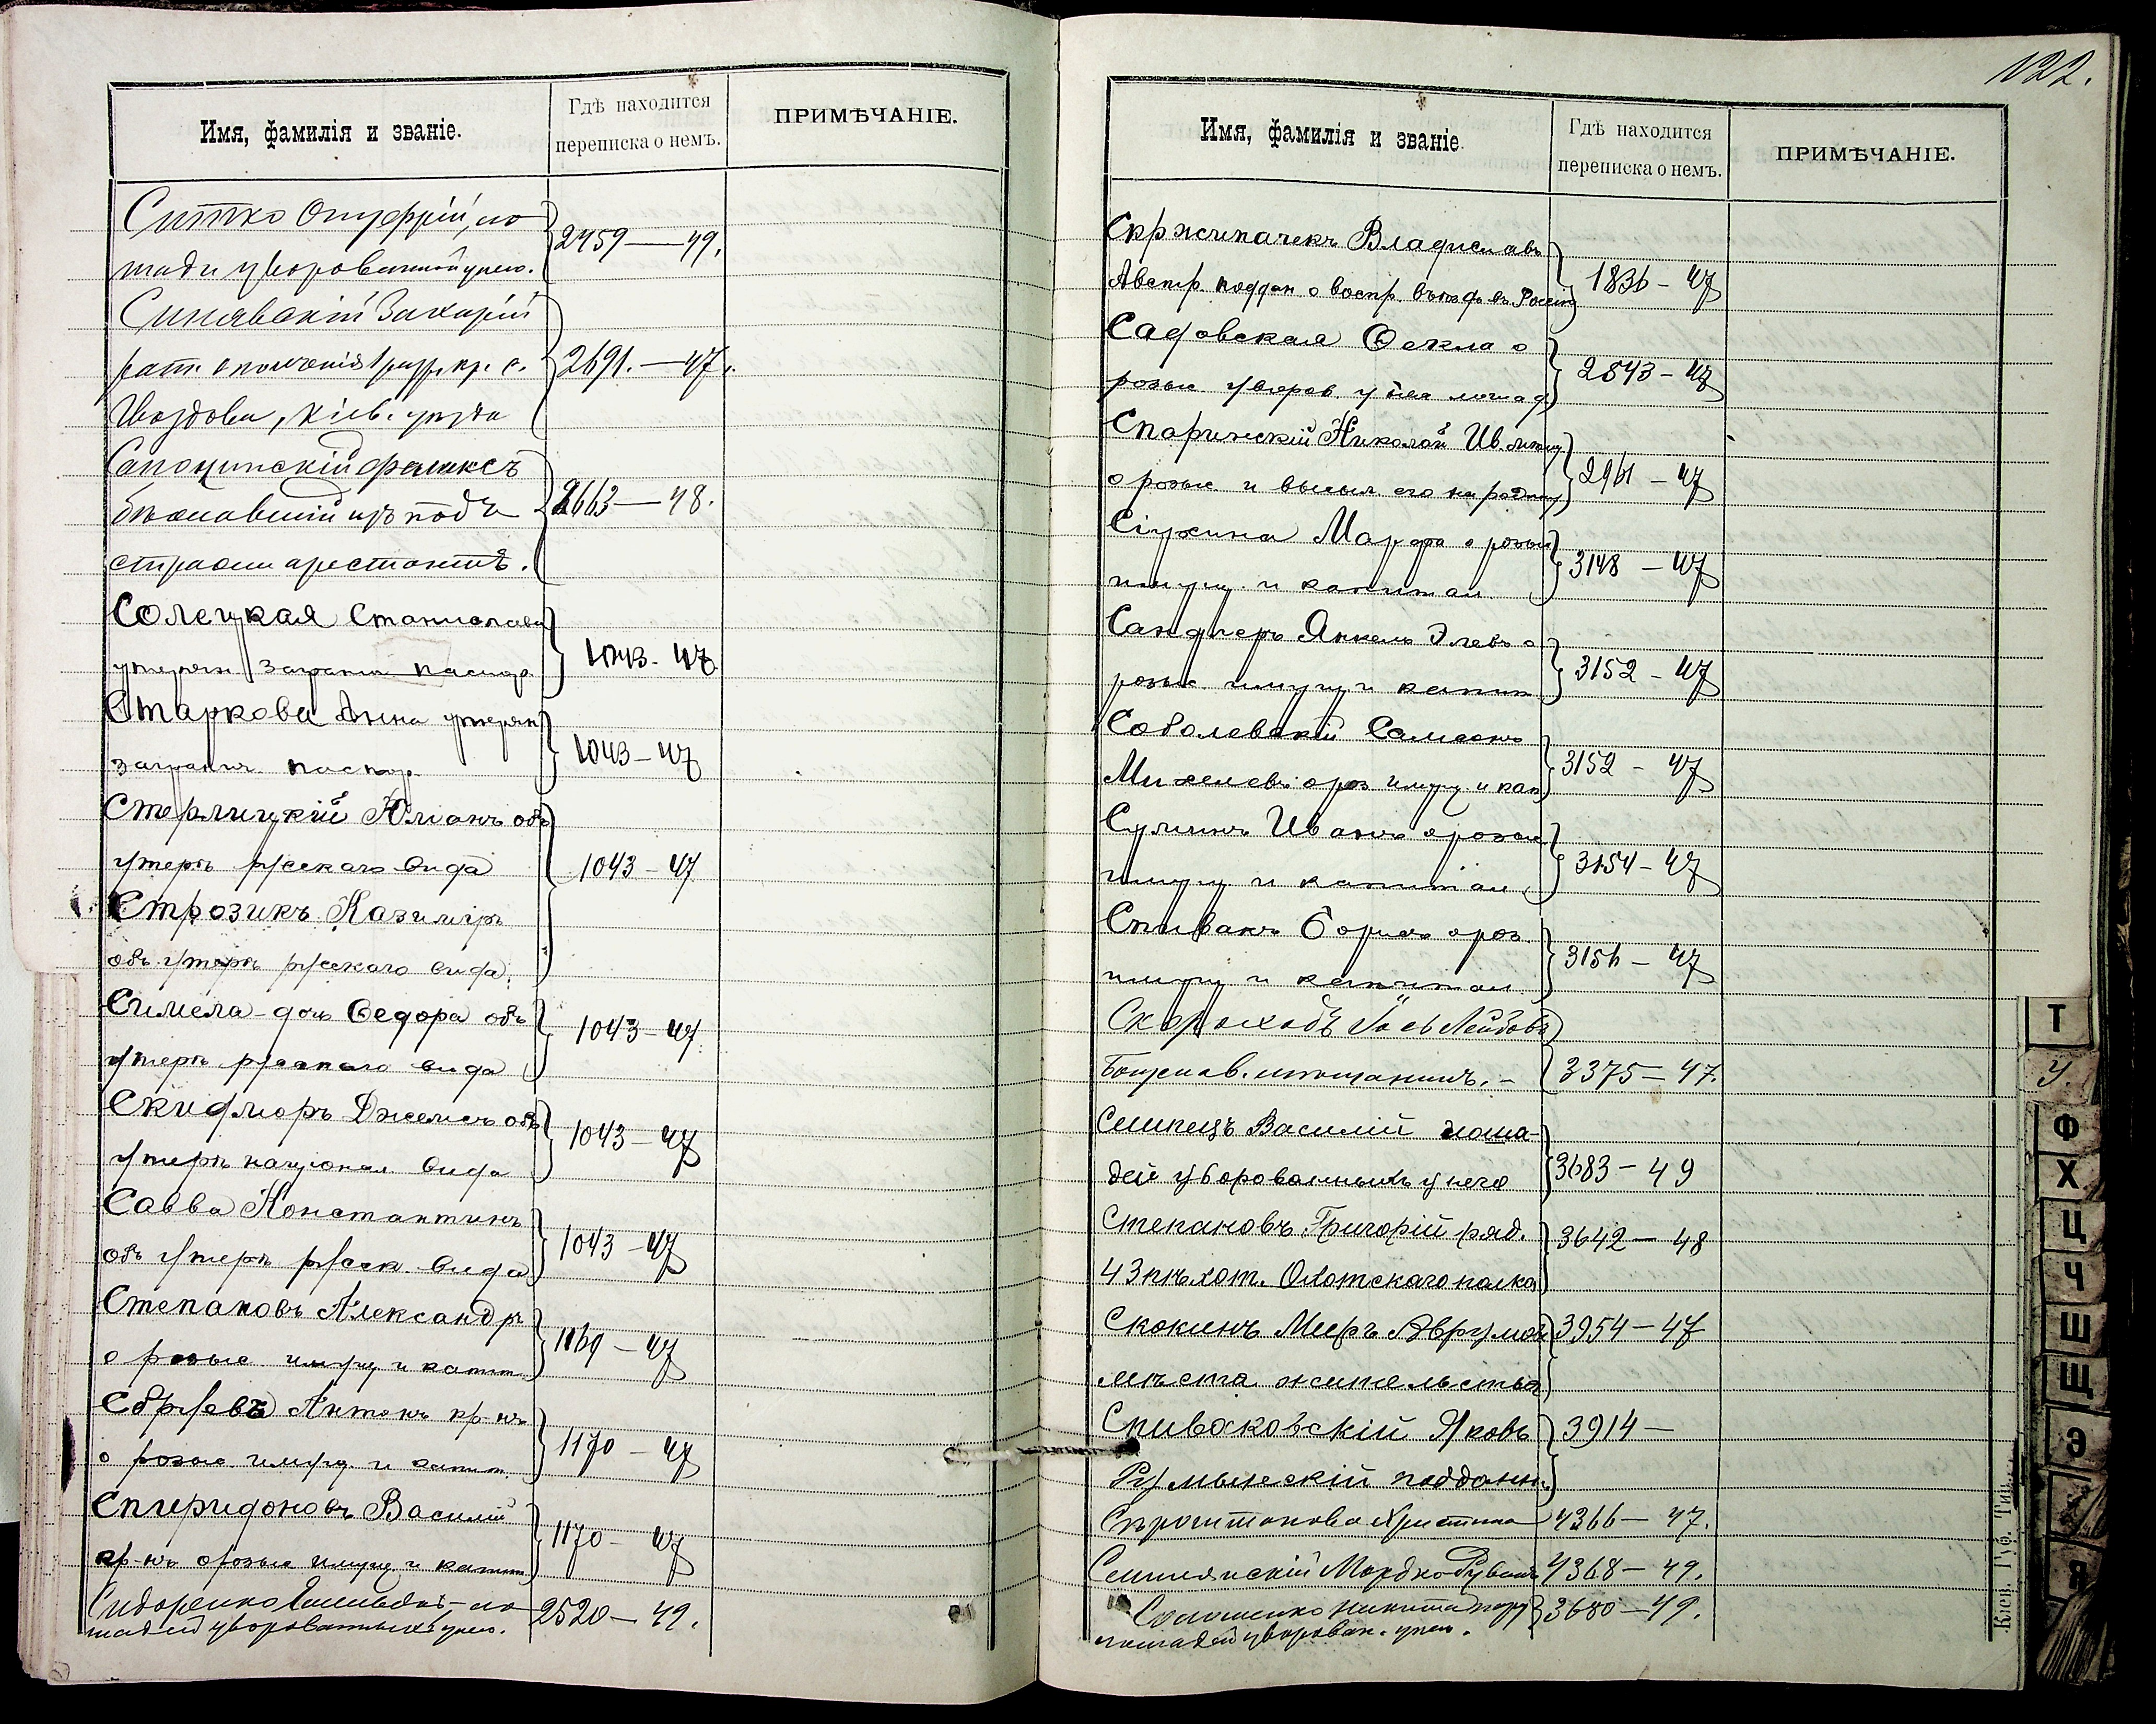 Имя, фамилія и званіе.
Гдѣ находится
переписка о немъ.
ПРИМѢЧАНІЕ.
Ситко Онуфрій, ло
шади уворованной у него.
2459 — 49.
Синявскій Захарій
рат. ополченія 1 разр. кр. с.
Гвоздова, Кіев. уѣзда
2691. — 47.
Сапоцинскій Феликсъ
бѣжавшій изъ подъ
стражи арестантъ.
2663 — 48.
Солецкая Станислава
утерян. загранич. паспор.
1043 - 47
Старкова Анна утерян
загранич. паспор.
1043 - 47
Стерлицкій Юліанъ объ
утерѣ русскаго вида
1043 - 47
Строзикъ Казиміръ
объ утерѣ русскаго вида.
Симела - доч. Ѳедора объ
утерѣ русскаго вида
1043 - 47
Скидморъ Джемсъ объ
утерѣ націонал. вида
1043 - 47
Савва Константинъ
объ утерѣ русск. вида
1043 - 47
Степановъ Александръ
о розыс. имущ. и капит.
1169 - 47
Антонъ кр-нъ
о розыс. имущ. и капит.
1170 - 47
Спиридоновъ Василій
кр-нъ о розыс. имущ. и капит
1170 - 47
Сидоренко ло
шадей уворованныхъ у него.
2520 — 49.
122.
Имя, фамилія и званіе.
Гдѣ находится
переписка о немъ.
ПРИМѢЧАНІЕ.
Скржипачекъ Владиславъ
Австр. поддан о воспр. въѣзд. въ Россію
1836 - 47
Садовская Ѳекла о
розыс. уворов. у нея лошад.
2843 - 47
Николай Ив.
о розыс. и высыл. его на родину
2961 - 47
Марфа о розыс
имущ. и капитал
3148 - 47
Сандлеръ Янкель Элевъ о
розыс имущ. и капит
3152 - 47
Соболевскій Самсонъ
Михелевъ о роз имущ. и кап
3152 - 47
Сулимъ Иванъ о розыс
имущ. и капитал.
3154 - 47
Спивакъ Борисъ о роз.
имущ. и капитал.
3156 - 47
Скороходъ Іось Лейбовъ
Богуслав. мѣщанинъ. -
3375 — 47.
Василій лоша-
дей уворованныхъ у него
3683 - 49
Степановъ Григорій ряд.
43 пѣхот. Охотскаго полка
3642 — 48
Скокинъ Меръ Аврумов
мѣста жительства
3954 - 47
Спиваковскій Яковъ
Румынскій подданн.
3914 —
Христина
4366 — 47.
Мордко
4368 — 49.
Никита
лошадей уворован. у него.
3680 — 49.
Т
У.
Ф
Х
Ц
Ч
Ш
Щ
Э
Я
Кіев. Губ. Тип.